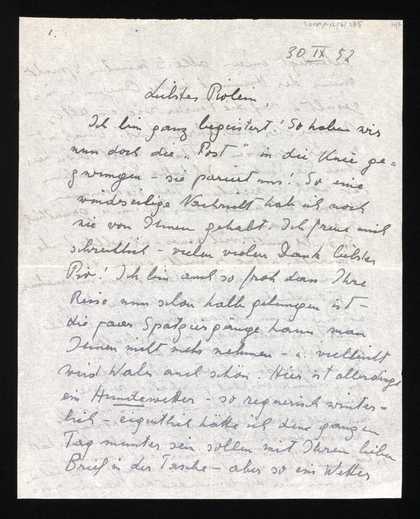 1.
30 IX 52
Liebstes Piolein
Ich bin ganz begeistert! So haben wir
nun doch die „Post" in die Knie ge-
zwungen - sie pariert uns! So eine
windseilige Nachricht hab ich noch
nie von Ihnen gehabt. Ich freue mich
schrecklich - vielen vielen Dank liebster
Pio! Ich bin auch so froh dass Ihre
Reise nun schon halb gelungen ist
die paar Spatziergänge kann man
Ihnen nicht mehr nehmen - u. vielleicht
wird Wales auch schön. Hier ist allerdings
ein Hundewetter - so regnerisch winter-
lich - eigentlich hätte ich den ganzen
Tag munter sein sollen mit Ihrem lieben
Brief in der Tasche - aber so ein Wetter